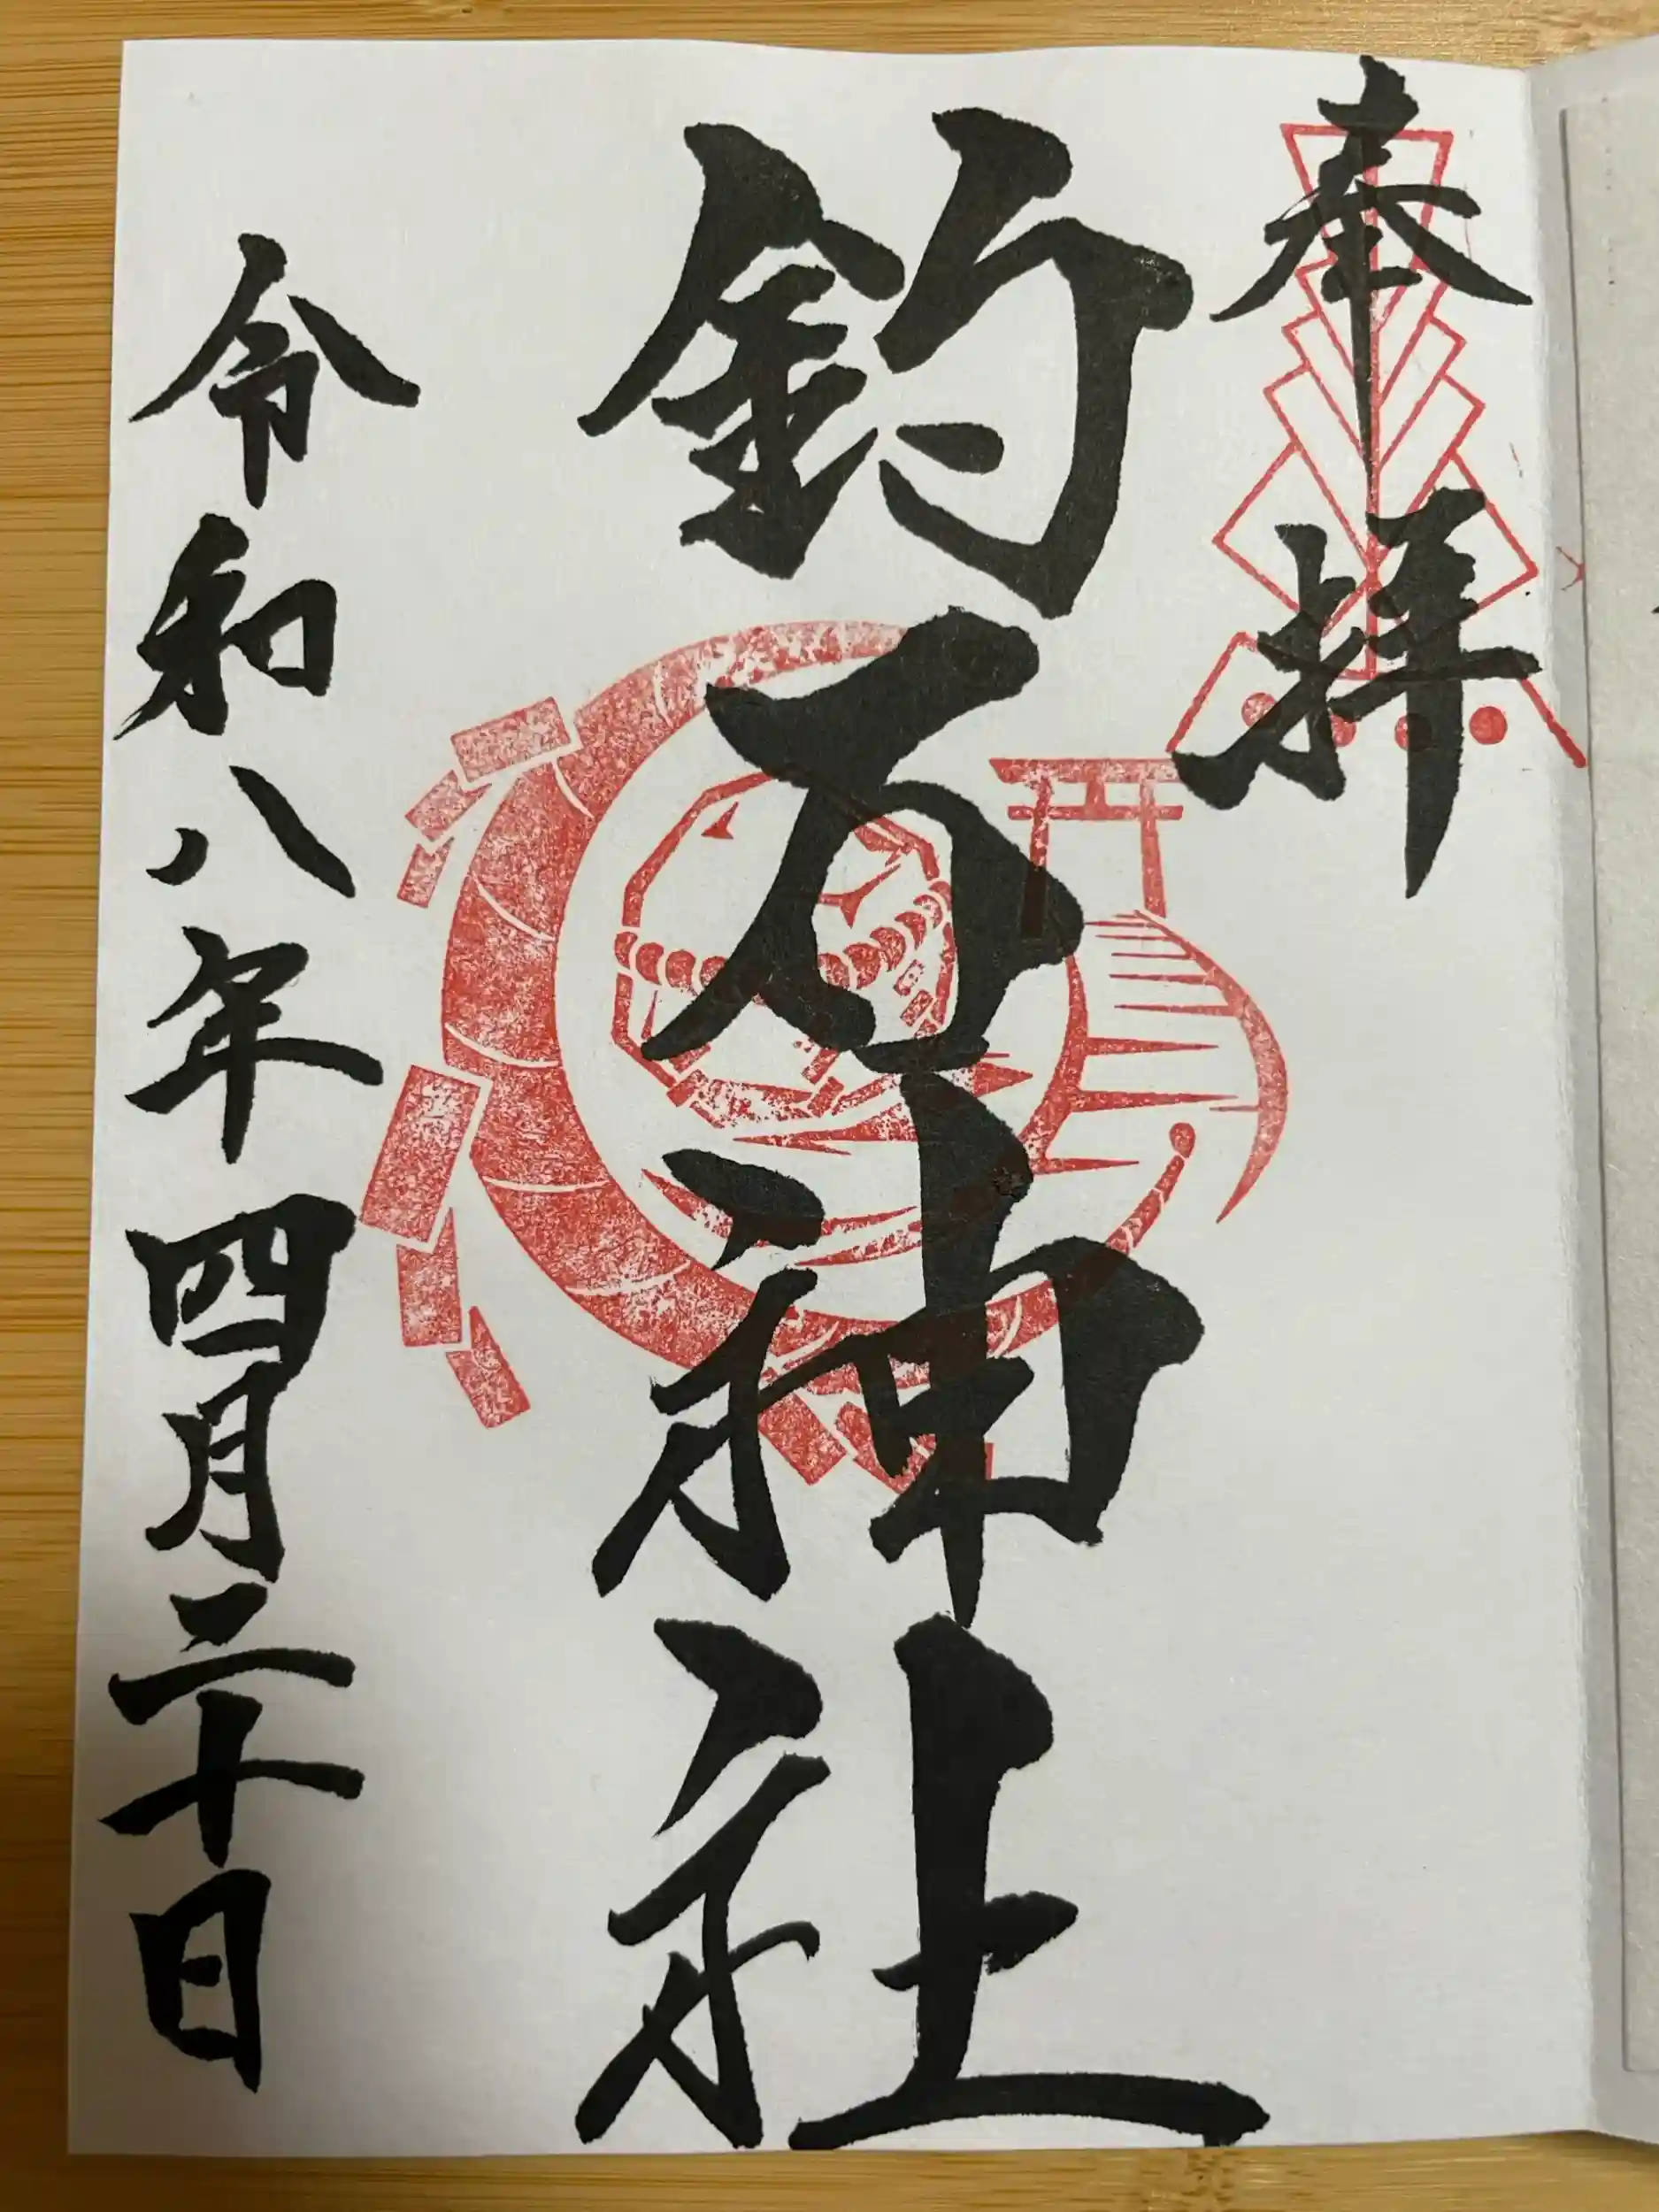 奉拝
釣石神社
令和八年四月二十日